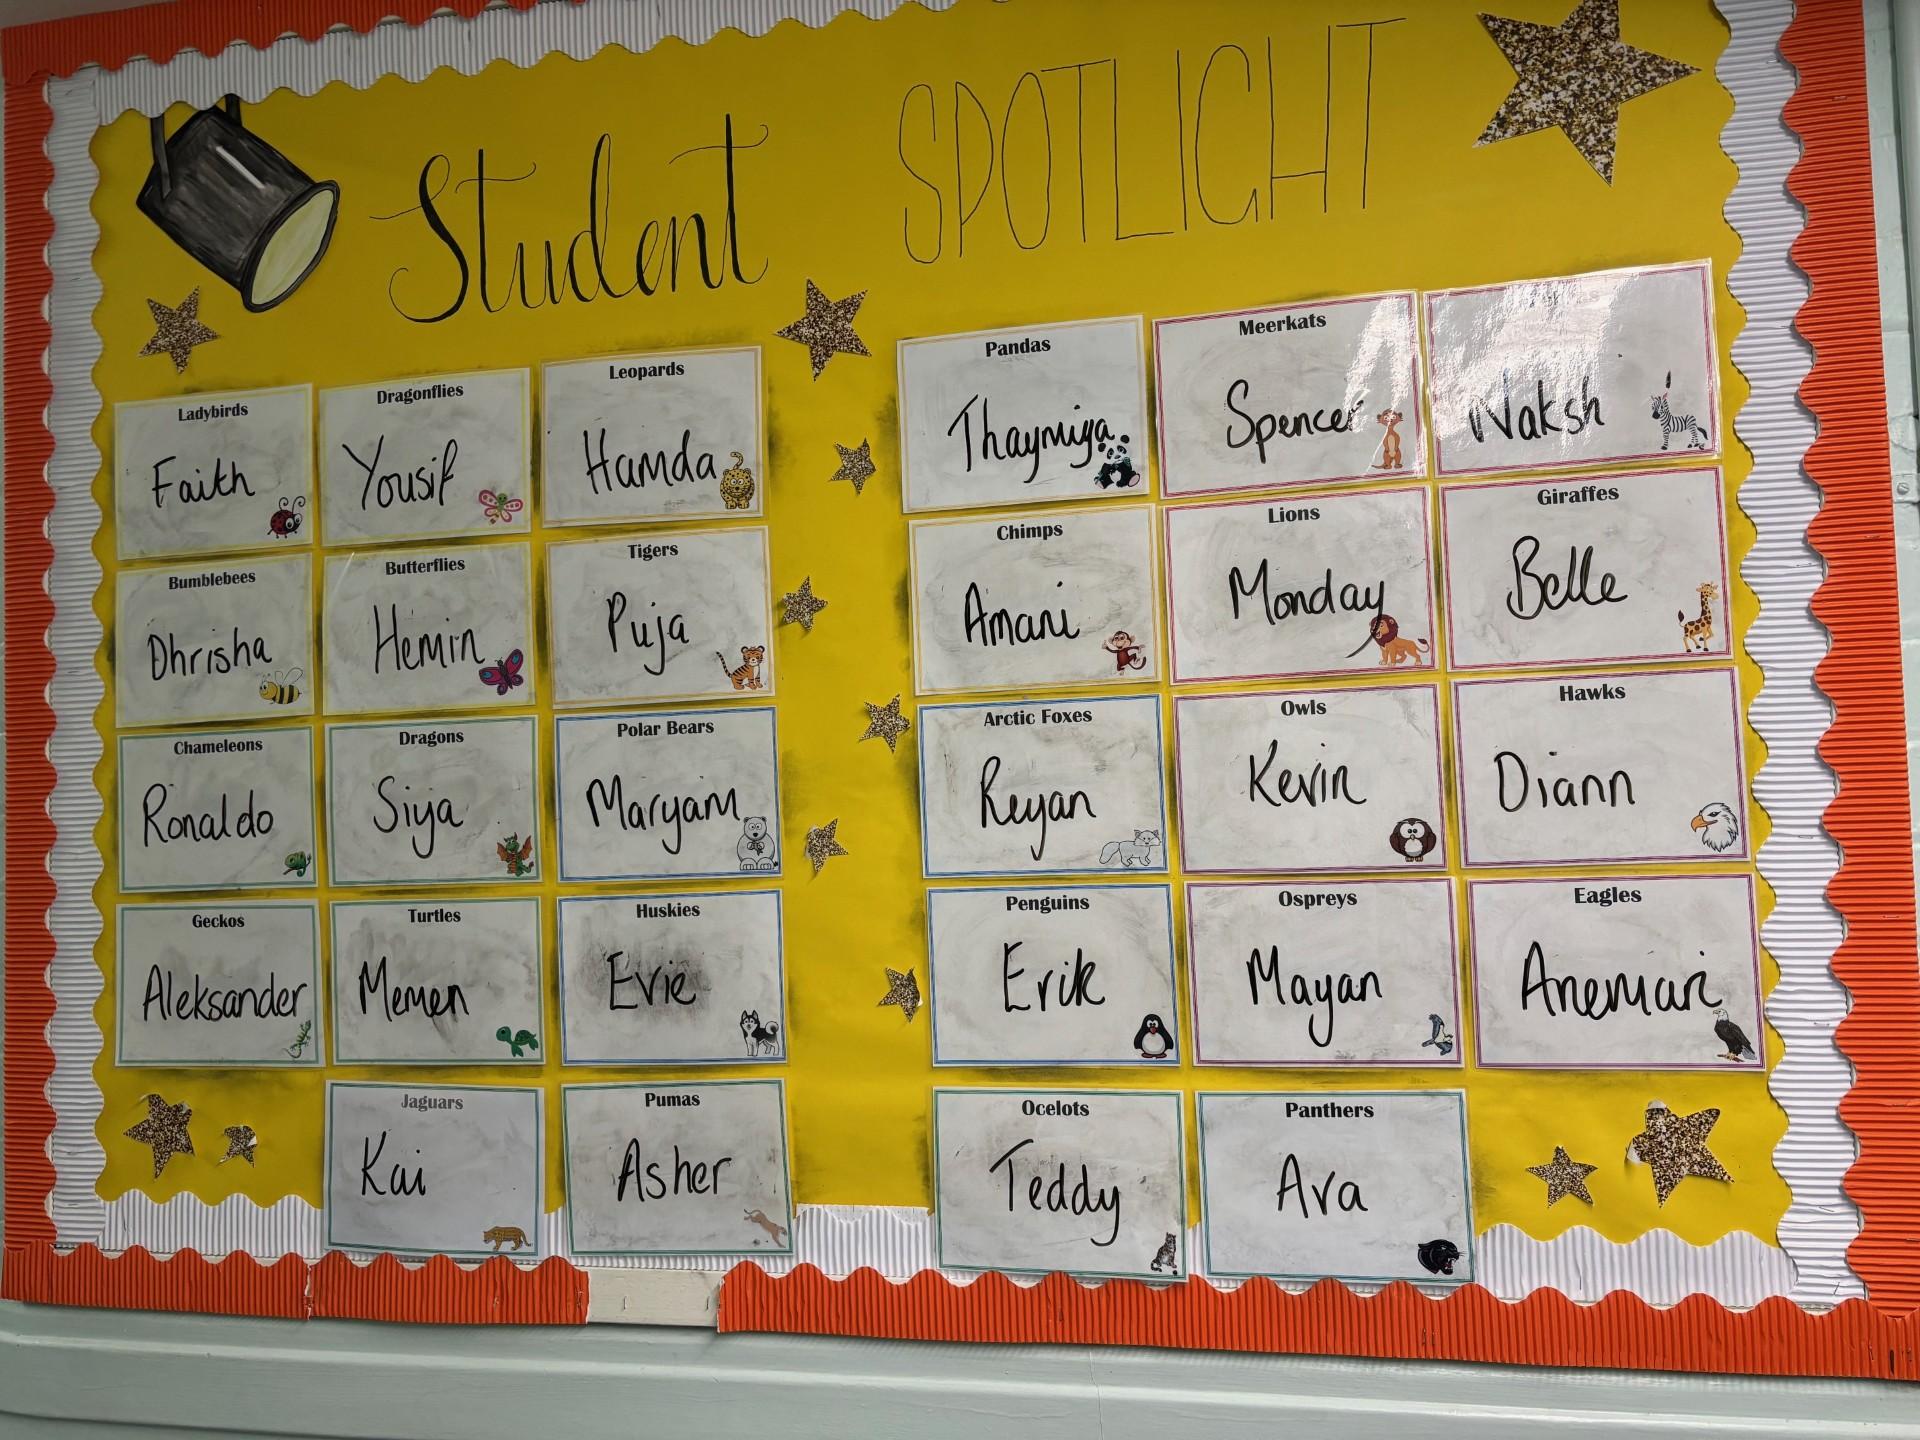 Student SPOTLIGHT
Ladybirds
Faith
Dragonflies
Yousif
Leopards
Hamda
Pandas
Thaymiya
Meerkats
Spencer
Naksh
Bumblebees
Dhrisha
Butterflies
Hemin
Tigers
Puja
Chimps
Amani
Lions
Monday
Giraffes
Belle
Chameleons
Ronaldo
Dragons
Siya
Polar Bears
Maryam
Arctic Foxes
Reyan
Owls
Kevin
Hawks
Diann
Geckos
Aleksander
Turtles
Memen
Huskies
Evie
Penguins
Erik
Ospreys
Mayan
Eagles
Anemari
Jaguars
Kai
Pumas
Asher
Ocelots
Teddy
Panthers
Ava